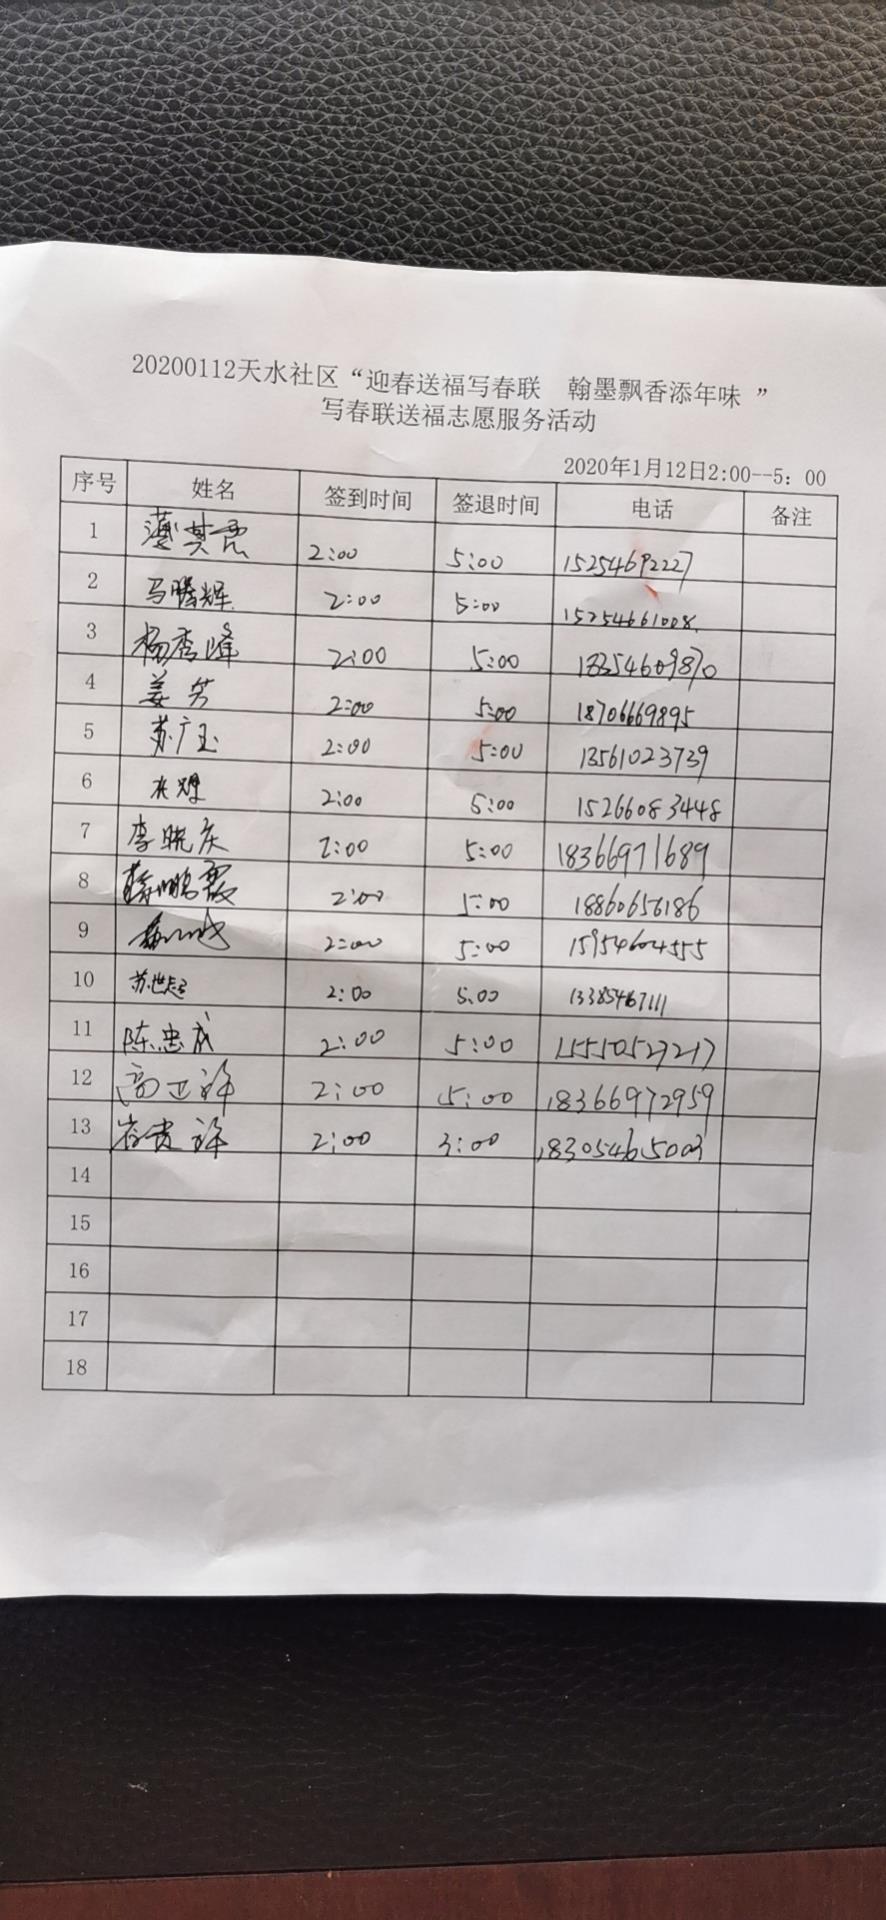 20200112天水社区“迎春送福写春联 翰墨飘香添年味 ”
写春联送福志愿服务活动
2020年1月12日2:00--5: 00
序号 姓名 签到时间 签退时间 电话 备注
1 2:00 5:00 15254692227
2 马腾辉 2:00 5:00 15254661008
3 杨秀峰 2:00 5:00 18354609870
4 姜芳 2:00 5:00 18706669895
5 苏广玉 2:00 5:00 13561023739
6 2:00 5:00 15266083448
7 李晓庆 2:00 5:00 18366971689
8 2:00 5:00 18860656186
9 2:00 5:00 15954604555
10 苏世超 2:00 5.00 13385467111
11 陈忠成 2:00 5:00 15550527217
12 高卫许 2:00 5:00 18366972959
13 2:00 3:00 18305465003
14
15
16
17
18